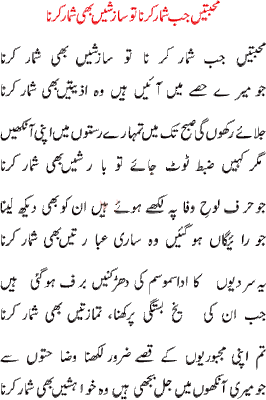 محبتیں جب شمار کرنا تو سازشیں بھی شمار کرنا
محبتیں جب شمار کرنا تو سازشیں بھی شمار کرنا
جو میرے حصے میں آئیں ہیں وہ اذیتیں بھی شمار کرنا
جلائے رکھوں گی صبح تک میں تمہارے رستوں میں اپنی آنکھیں
مگر کہیں ضبط ٹوٹ جائے تو بارشیں بھی شمار کرنا
جو حرف لوح وفا پہ لکھے ہوئے ہیں ان کو بھی دیکھ لینا
جو رائیگاں ہو گئیں وہ ساری عبارتیں بھی شمار کرنا
یہ سردیوں کا اداس موسم کی دھڑکنیں برف ہو گئی ہیں
جب ان کی یخ بستگی پرکھنا، تمازتیں بھی شمار کرنا
تم اپنی مجبوریوں کے قصے ضرور لکھنا وضاحتوں سے
جو میری آنکھوں میں جل بجھی ہیں وہ خواہشیں بھی شمار کرنا